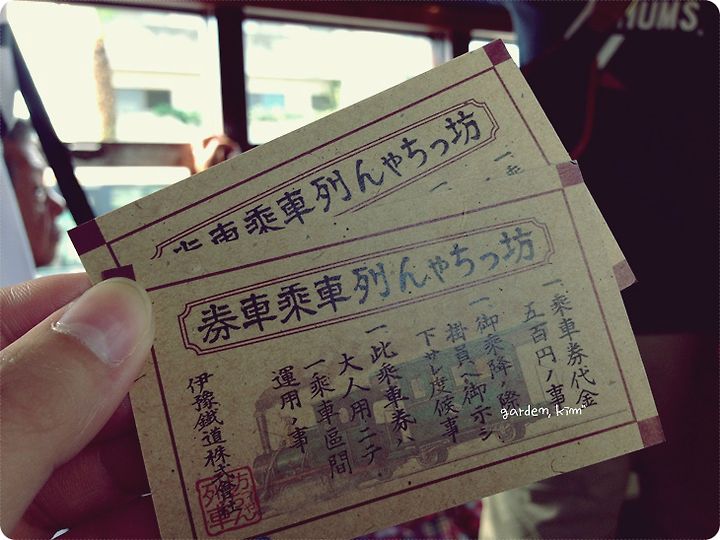 坊っちゃん列車乗車
坊っちゃん列車乗車券
一、乗車券代金
五百円ノ事
一、御乗降ノ際
掛員へ御示シ
下サレ度候事
一、此乗車券ハ
大人用ニテ
一乗車區間
運用ノ事
伊豫鐵道株式會社
坊っちゃん列車
HUMS.
garden, kim